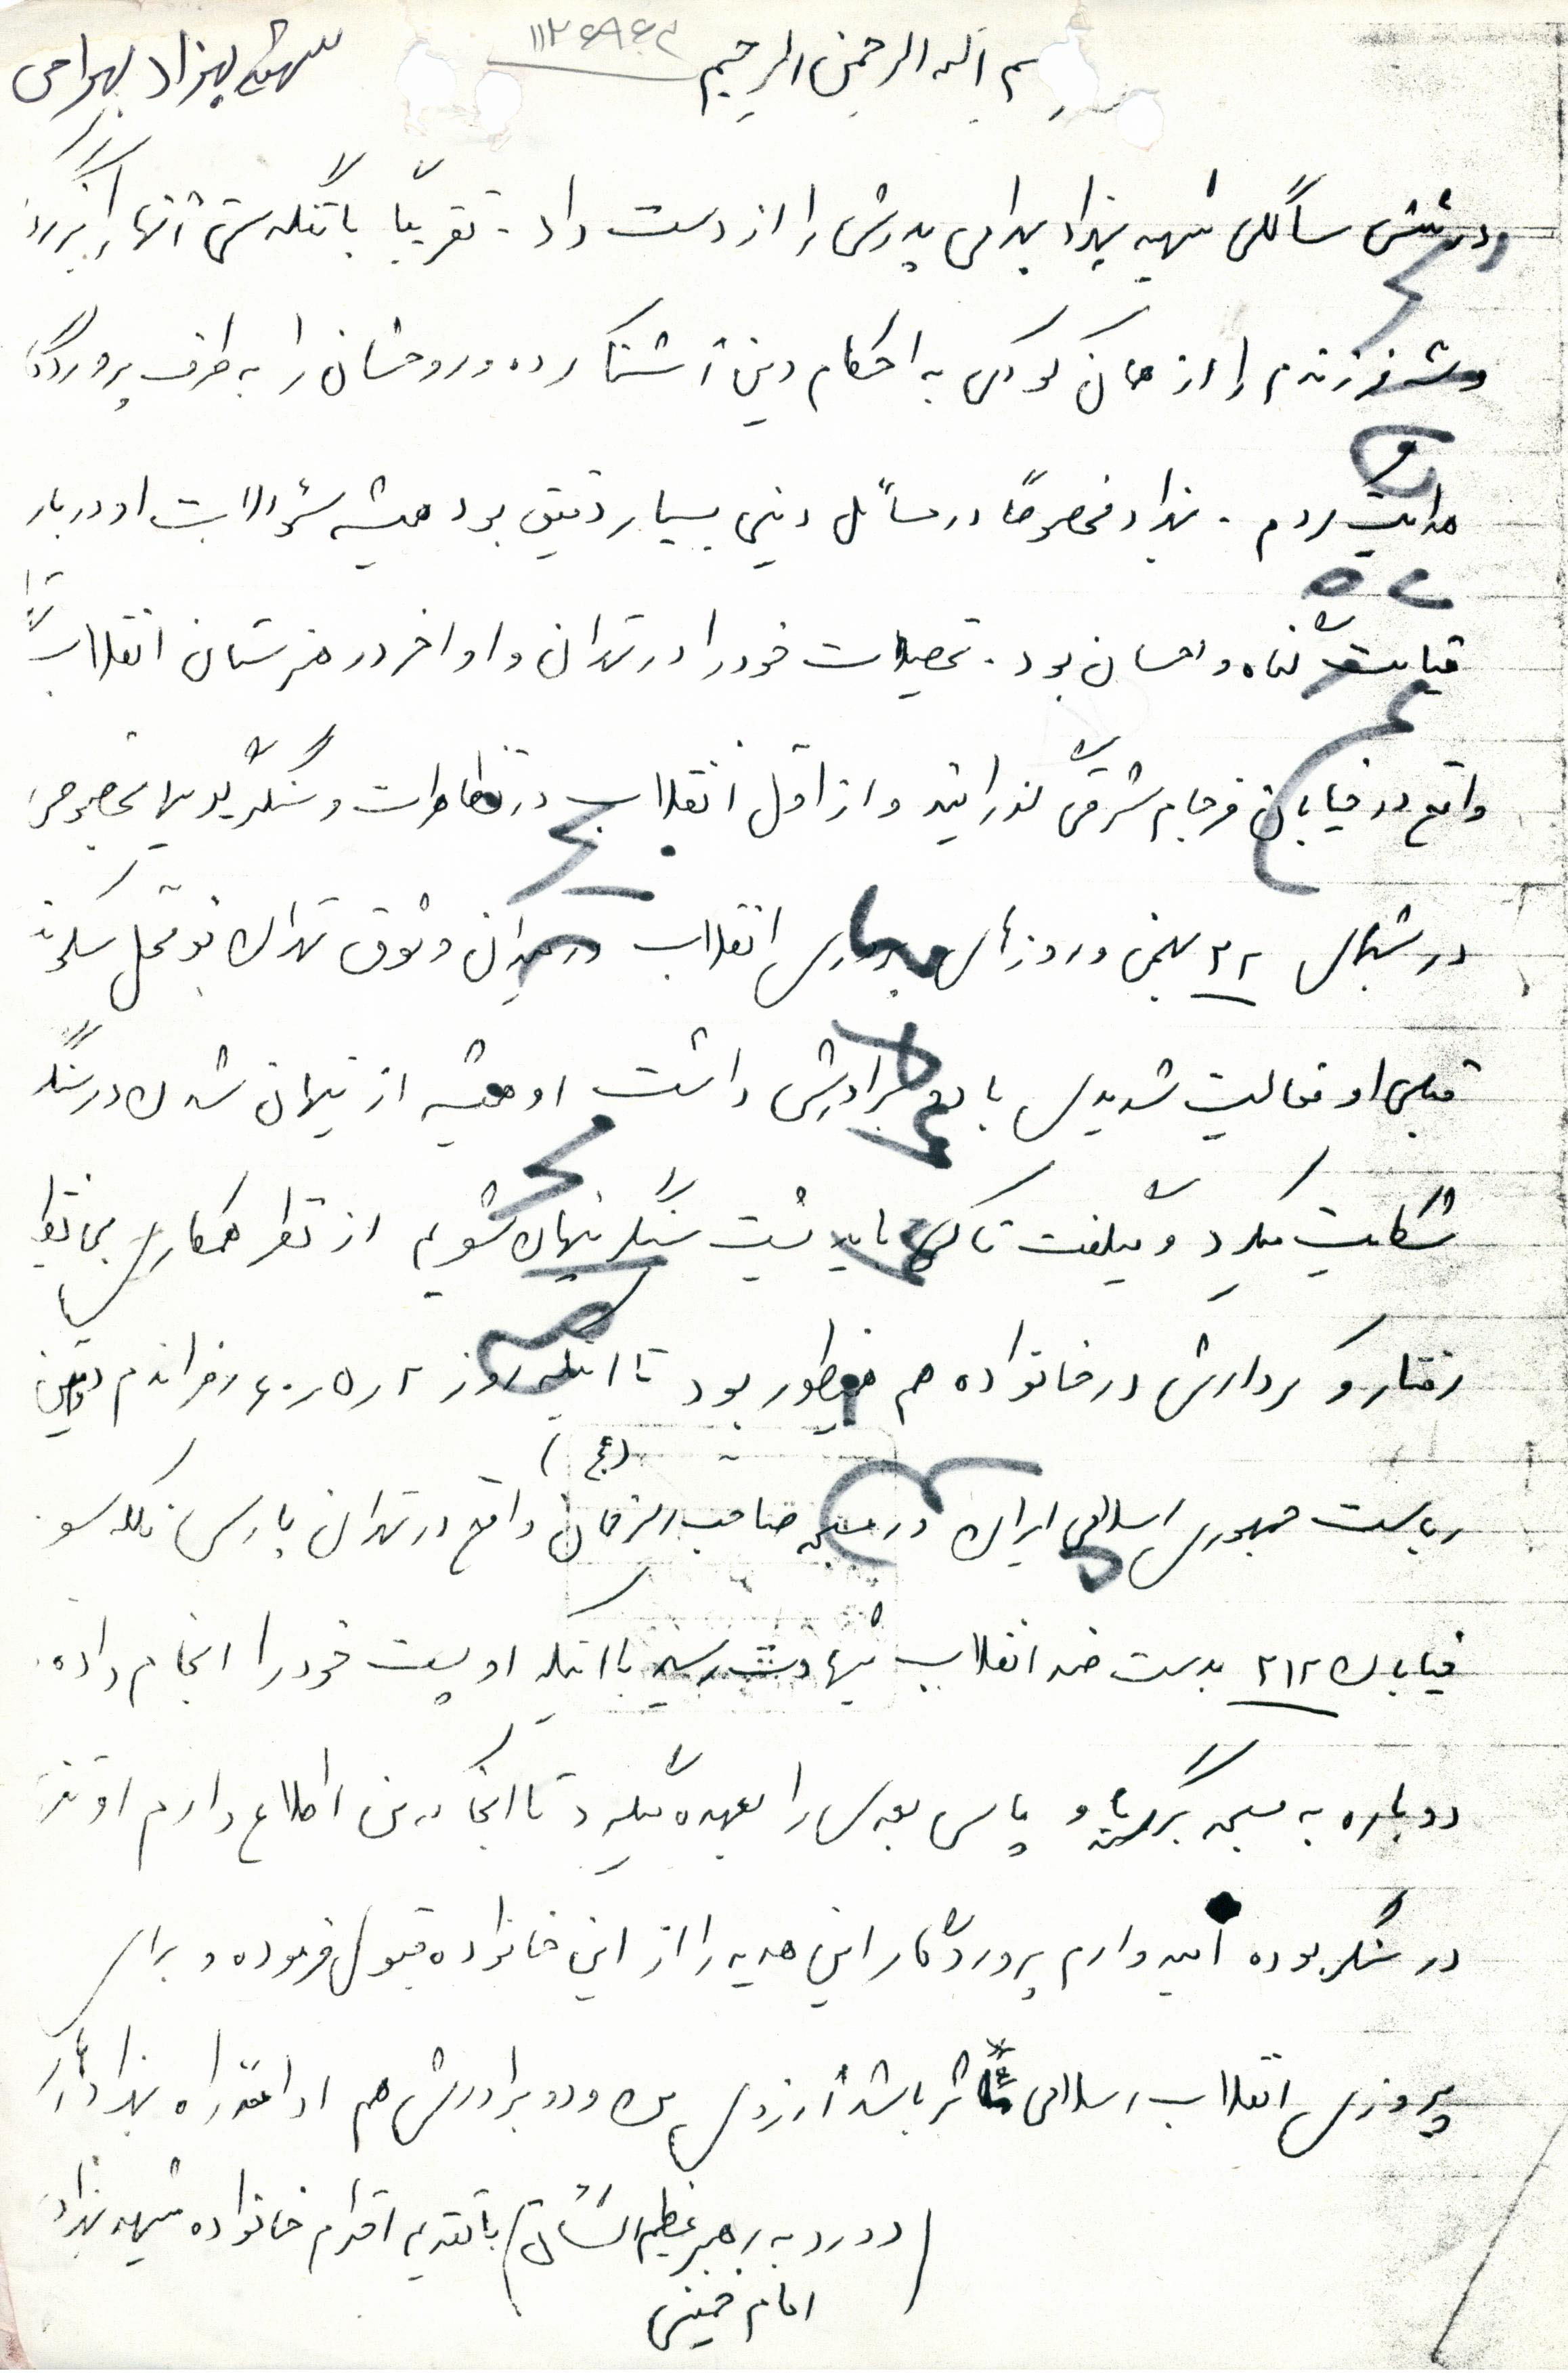 بسم الله الرحمن الرحیم
۱۱۲۶۹۶۲
شهید بهزاد بهرامی
در شش سالگی شهید بهزاد بهرامی پدرش را از دست داد. تقریباً با تنگدستی آنها را بزرگ
فرزندم را از همان کودکی به احکام دین آشنا کرده و روحشان را به طرف پروردگار
هدایت کردم. بهزاد مخصوصاً در مسائل دینی بسیار دقیق بود همیشه سئوالات او درباره
قیامت گناه و احسان بود. تحصیلات خود را در تهران و اواخر در هنرستان انقلاب
واقع در خیابان فرجام شرقی گذرانید و از اول انقلاب در تظاهرات و سنگربندیها بخصوص
در شبهای ۲۲ بهمن و روزهای انقلاب در میدان وثوق تهران نو محل سکونت
قبلی او فعالیت شدیدی با برادرش داشت او همیشه از پنهان شدن در سنگر
شکایت میکرد و میگفت تا کی باید پشت سنگر پنهان شویم از نظر همکاری همانطور
رفتار و کردارش در خانواده هم همینطور بود تا اینکه روز ۶۰/۵/۲ رفراندم دومین
ریاست جمهوری اسلامی ایران در مسجد صاحب الزمان (عج) واقع در تهران پارس فلکه سوم
خیابان ۲۱۲ بدست ضد انقلاب بشهادت رسید با اینکه او پست خود را انجام داده
دوباره به مسجد برگشته و پاس بعدی را بعهده میگیرد تا آنجا که من اطلاع دارم او تنها
در سنگر بوده امیدوارم پروردگار این هدیه را از این خانواده قبول فرموده و برای
پیروزی انقلاب اسلامی مؤثر باشد آرزوی من و دو برادرش هم ادامه راه بهزاد
(درود به رهبر عظیم الشان) با تقدیم احترام خانواده شهید بهزاد
امام خمینی